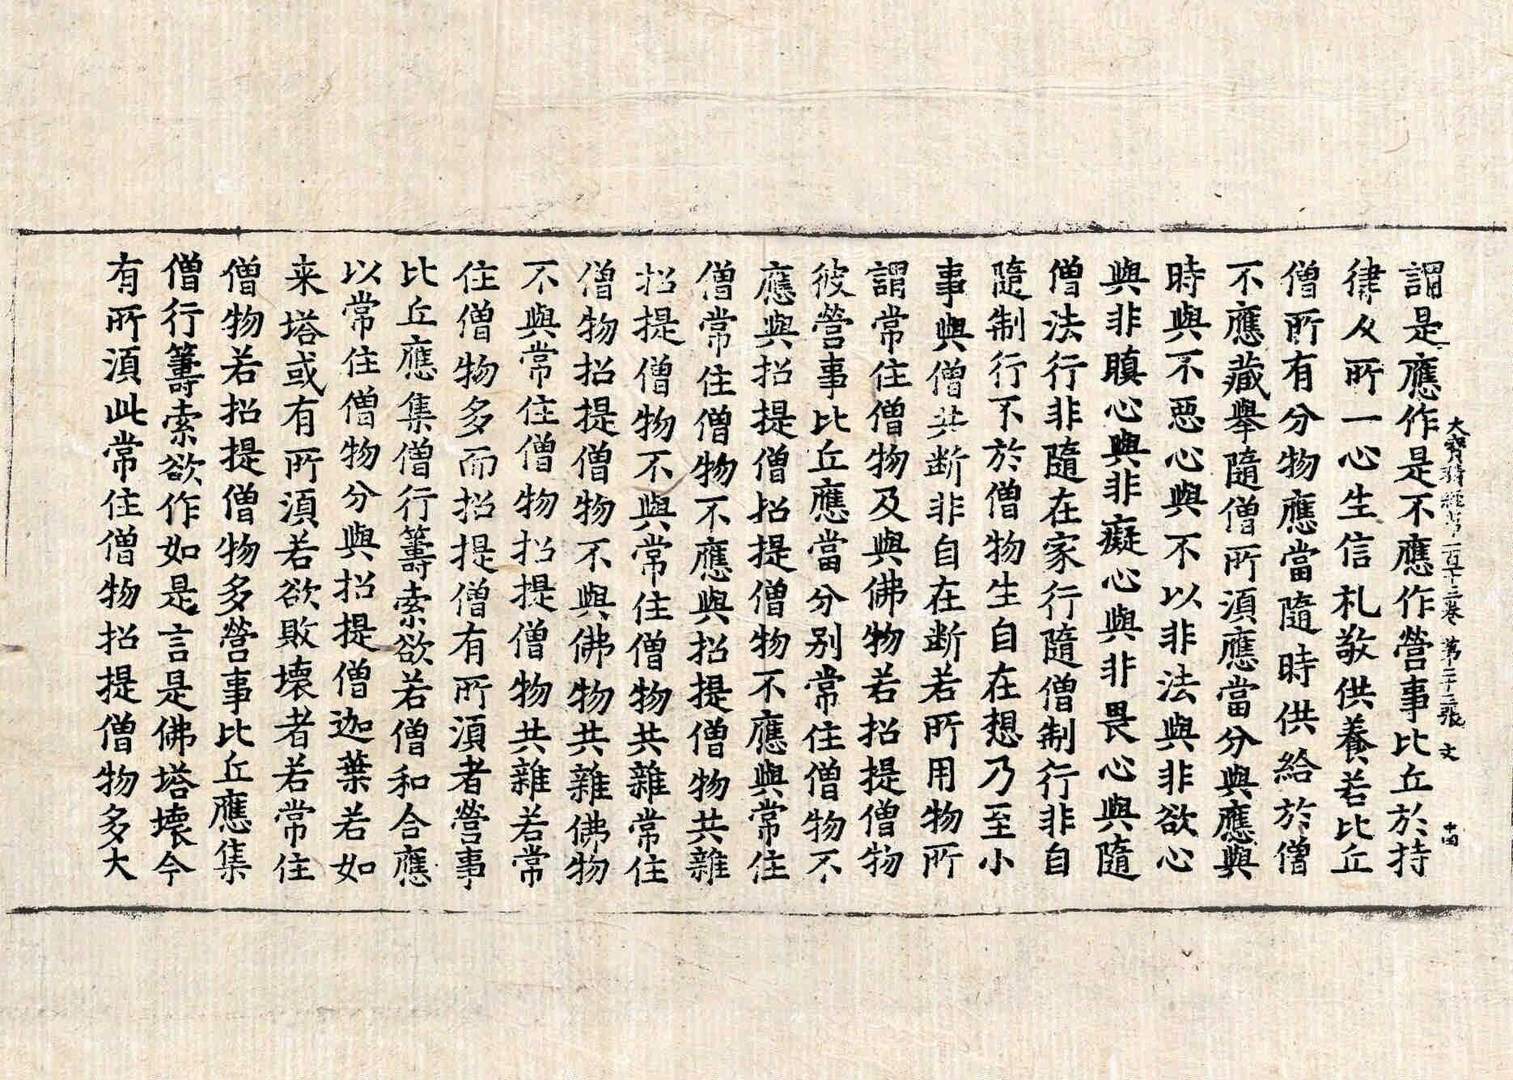 謂是應作是不應作營事比丘於持
大寶積經第一百十三卷 第二十二張 文
律人所一心生信札敬供養若比丘
僧所有分物應當隨時供給於僧
不應藏舉隨僧所湏應當分與應與
時與不惡心與不以非法與非欲心
與非瞋心與非癡心與非畏心與隨
僧法行非隨在家行隨僧制行非自
隨制行不於僧物生自在想乃至小
事與僧共斷非自在斷若所用物所
謂常住僧物及與佛物若招提僧物
彼營事比丘應當分別常住僧物不
應與招提僧招提僧物不應與常住
僧常住僧物不應與招提僧物共雜
招提僧物不與常住僧物共雜常住
僧物招提僧物不與佛物共雜佛物
不與常住僧物招提僧物共雜若常
住僧物多而招提僧有所湏者營事
比丘應集僧行籌索欲若僧和合應
以常住僧物分與招提僧迦葉若如
来塔或有所湏若欲敗壞者若常住
僧物若招提僧物多營事比丘應集
僧行籌索欲作如是言是佛塔壞今
有所湏此常住僧物招提僧物多大